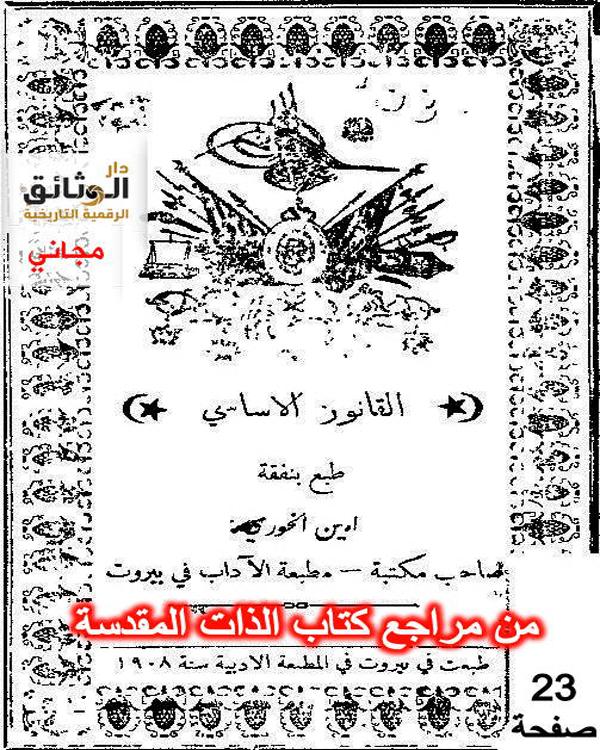 دار
الوثائق
الرقمية التاريخية
مجاني
القانون الاساسي
طبع بنفقة
امين الخوري
صاحب مكتبة – مطبعة الآداب في بيروت
من مراجع كتاب الذات المقدسة
طبعت في بيروت في المطبعة الادبية سنة ١٩٠٨
23
صفحة